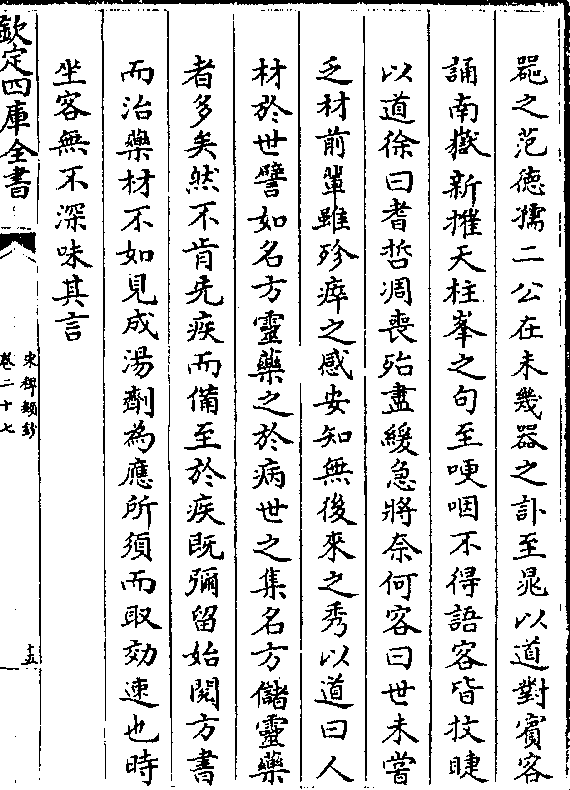 器之范徳孺二公在未幾器之訃至晁以道對賓客
誦南嶽新摧天柱峯之句至哽咽不得語客皆抆睫
以道徐曰耆哲凋喪殆盡緩急將奈何客曰世未嘗
乏材前輩雖殄瘁之感安知無後來之秀以道曰人
材於世譬如名方靈藥之於病世之集名方儲靈藥
者多矣然不肯先疾而備至於疾既彌留始閱方書
而治藥材不如見成湯劑為應所須而取効速也時
坐客無不深味其言
欽定四庫全書
宋稗類鈔
卷二十七
十五